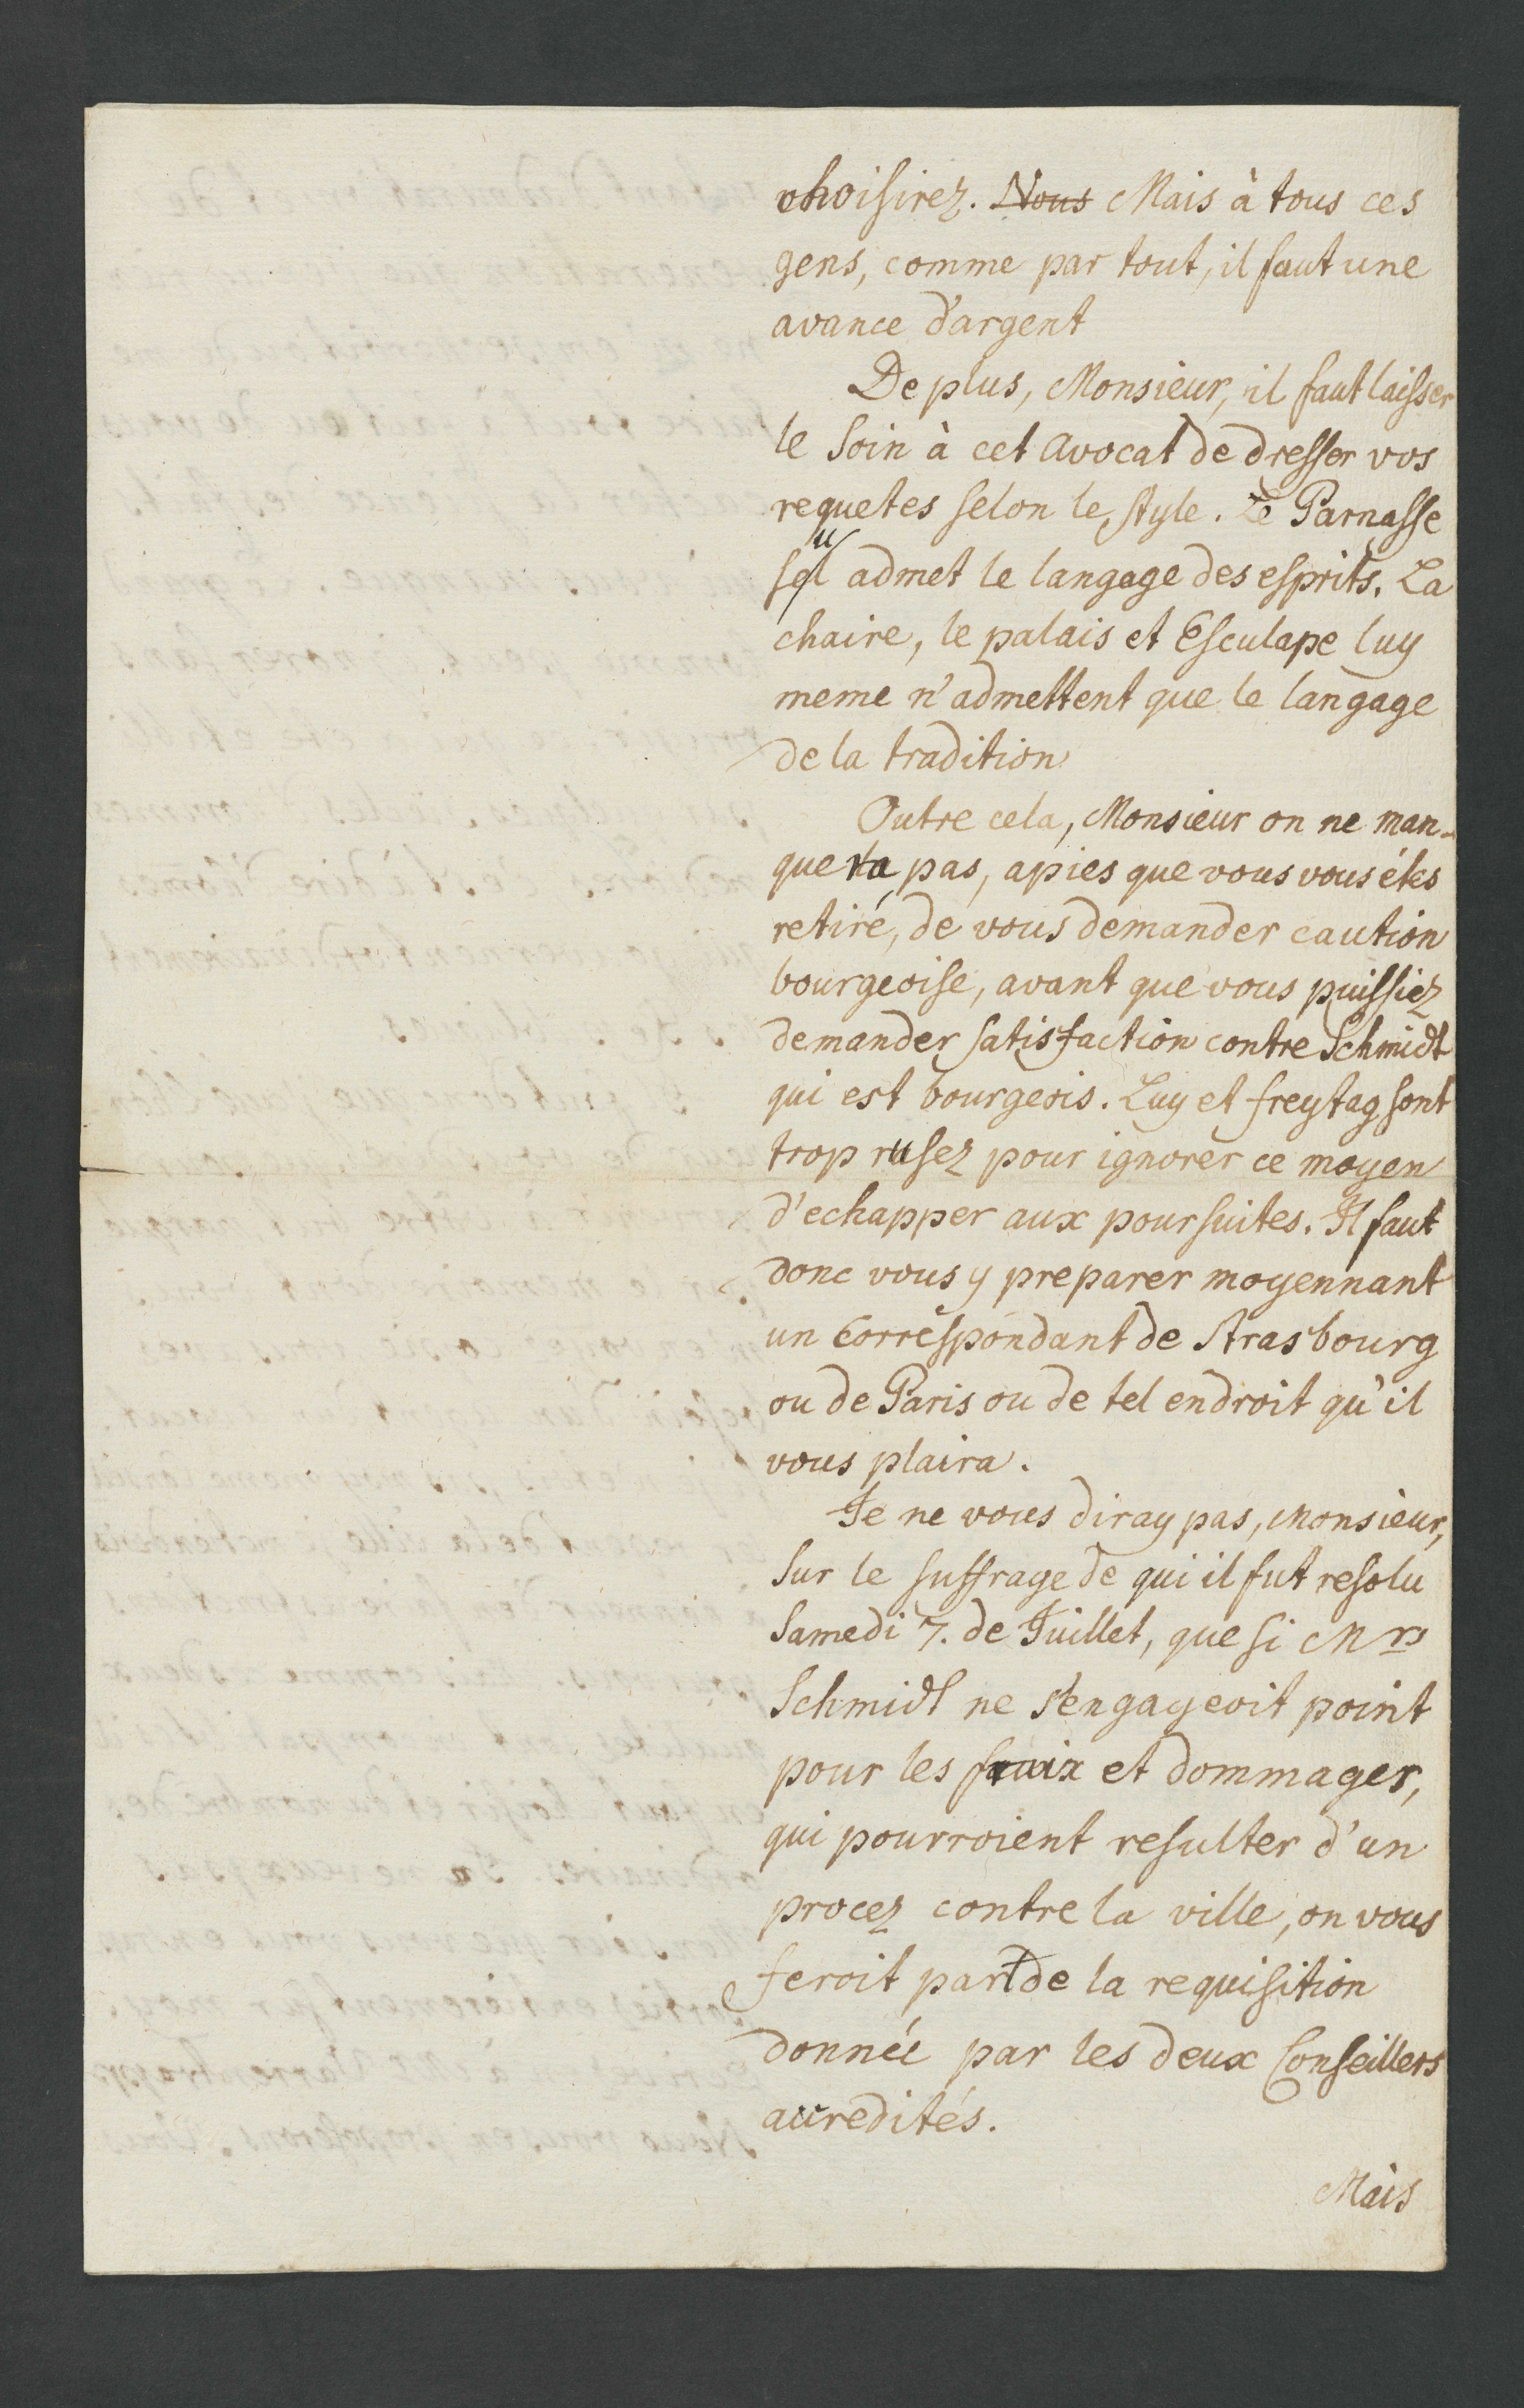 choisirez. Nous Mais à tous ces
gens, comme par tout, il faut une
avance d'argent
De plus, Monsieur, il faut laisser
le soin à cet avocat de dresser vos
requetes selon le style. Le Parnasse
seul admet le langage des esprits. La
chaire, le palais et Esculape luy
meme n'admettent que le langage
de la tradition
Outre cela, Monsieur on ne man-
quera pas, apies que vous vous étes
retiré, de vous demander caution
bourgeoise, avant que vous puissiez
demander satisfaction contre Schmidt
qui est bourgeois. Luy et freytag sont
trop rusez pour ignorer ce moyen
d'echapper aux poursuites. Il faut
donc vous y preparer moyennant
un Correspondant de Strasbourg
ou de Paris ou de tel endroit qu'il
vous plaira.
Je ne vous diray pas, Monsieur,
sur le suffrage de qui il fut resolu
Samedi 7. de Juillet, que si Mrs
Schmidt ne s'engageoit point
pour les fraix et dommages,
qui pourroient resulter d'un
procez contre la ville, on vous
feroit part de la requisition
donnée par les deux Conseillers
accredités.
Mais